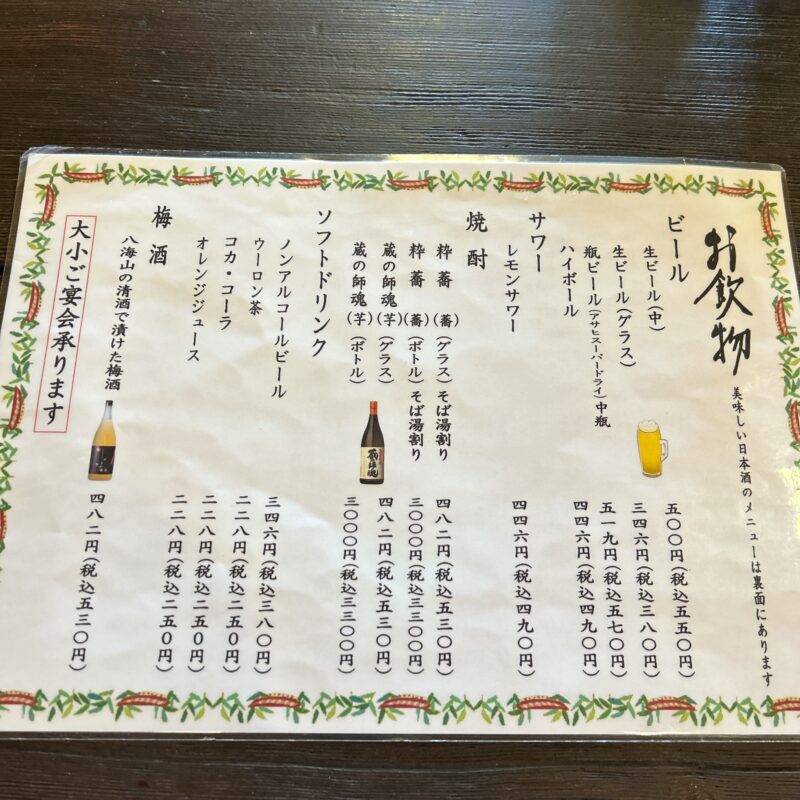 お飲物
美味しい日本酒のメニューは裏面にあります
ビール
生ビール(中) 五〇〇円(税込五五〇円)
生ビール(グラス) 三四六円(税込三八〇円)
瓶ビール(アサヒスーパードライ)中瓶 五一九円(税込五七〇円)
ハイボール 四四六円(税込四九〇円)
サワー
レモンサワー 四四六円(税込四九〇円)
焼酎
粋蕎 (蕎)(グラス)そば湯割り 四八二円(税込五三〇円)
粋蕎 (蕎)(ボトル)そば湯割り 三〇〇〇円(税込三三〇〇円)
蔵の師魂(芋)(グラス) 四八二円(税込五三〇円)
蔵の師魂(芋)(ボトル) 三〇〇〇円(税込三三〇〇円)
蔵の師魂
ソフトドリンク
ノンアルコールビール 三四六円(税込三八〇円)
ウーロン茶 二二八円(税込二五〇円)
コカ・コーラ 二二八円(税込二五〇円)
オレンジジュース 二二八円(税込二五〇円)
梅酒
八海山の清酒で漬けた梅酒 四八二円(税込五三〇円)
大小ご宴会承ります